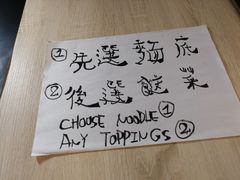 ① 先選麵底
② 後選餸菜
CHOOSE NOODLE ①
ANY TOPPINGS ②